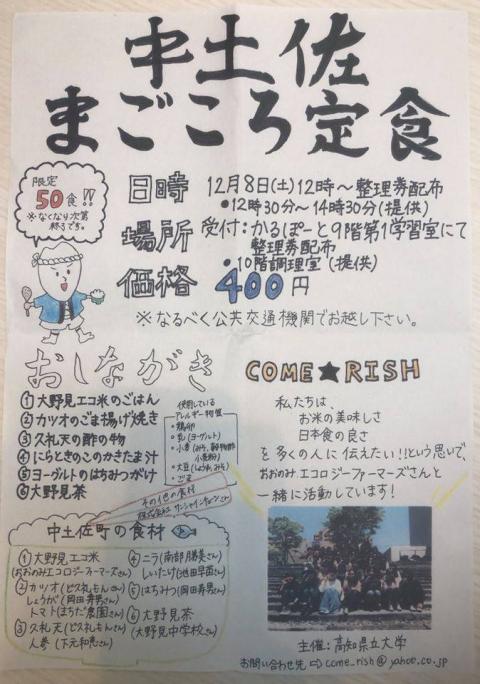 中土佐
まごころ定食
限定
50食!!
※なくなり次第
終了です。
日時 12月8日(土)12時～整理券配布
●12時30分～14時30分(提供)
場所 受付:かるぽーと9階第1学習室にて
整理券配布
●10階調理室(提供)
価格 400円
※なるべく公共交通機関でお越し下さい。
おしながき
①大野見エコ米のごはん
②カツオのごま揚げ焼き
③久礼天の酢の物
④にらときのこのかきたま汁
⑤ヨーグルトのはちみつがけ
⑥大野見茶
使用している
アレルギー物質
・鶏卵
・乳(ヨーグルト)
・小麦(みそ、穀物酢
小麦粉)
・大豆(しょうゆ、みそ)
・ごま
その他の食材
株式会社サンシャインチェーンさん
COME★RISH
私たちは、
お米の美味しさ
日本食の良さ
を多くの人に伝えたい!!という思いで、
おおのみエコロジーファーマーズさんと
一緒に活動しています!
中土佐町の食材
①大野見エコ米
(おおのみエコロジーファーマーズさん)
②カツオ(ど久礼もんさん)
しょうが(岡田寿男さん)
トマト(まちだ農園さん)
③久礼天(ど久礼もんさん)
人参(下元和恵さん)
④ニラ(南部月勝美さん)
しいたけ(池田早苗さん)
⑤はちみつ(岡田寿男さん)
⑥大野見茶
(大野見中学校さん)
主催:高知県立大学
お問い合わせ先⇨come_rish@yahoo.co.jp